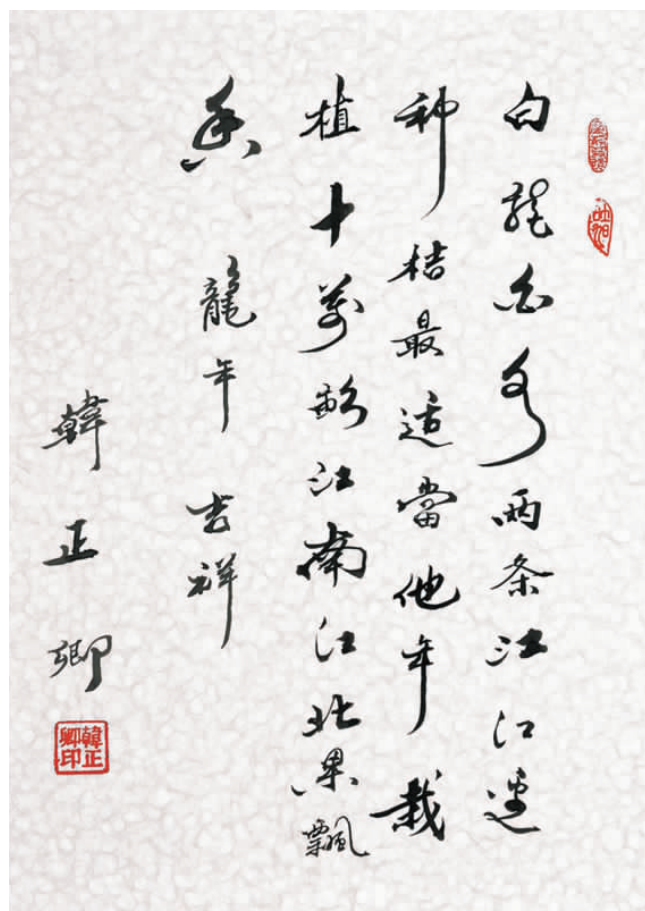 白龍白水兩条江江邊
种桔最適當他年栽
植十萬畝江南江北果飄
香 龍年吉祥
韓正卿
韓正卿印